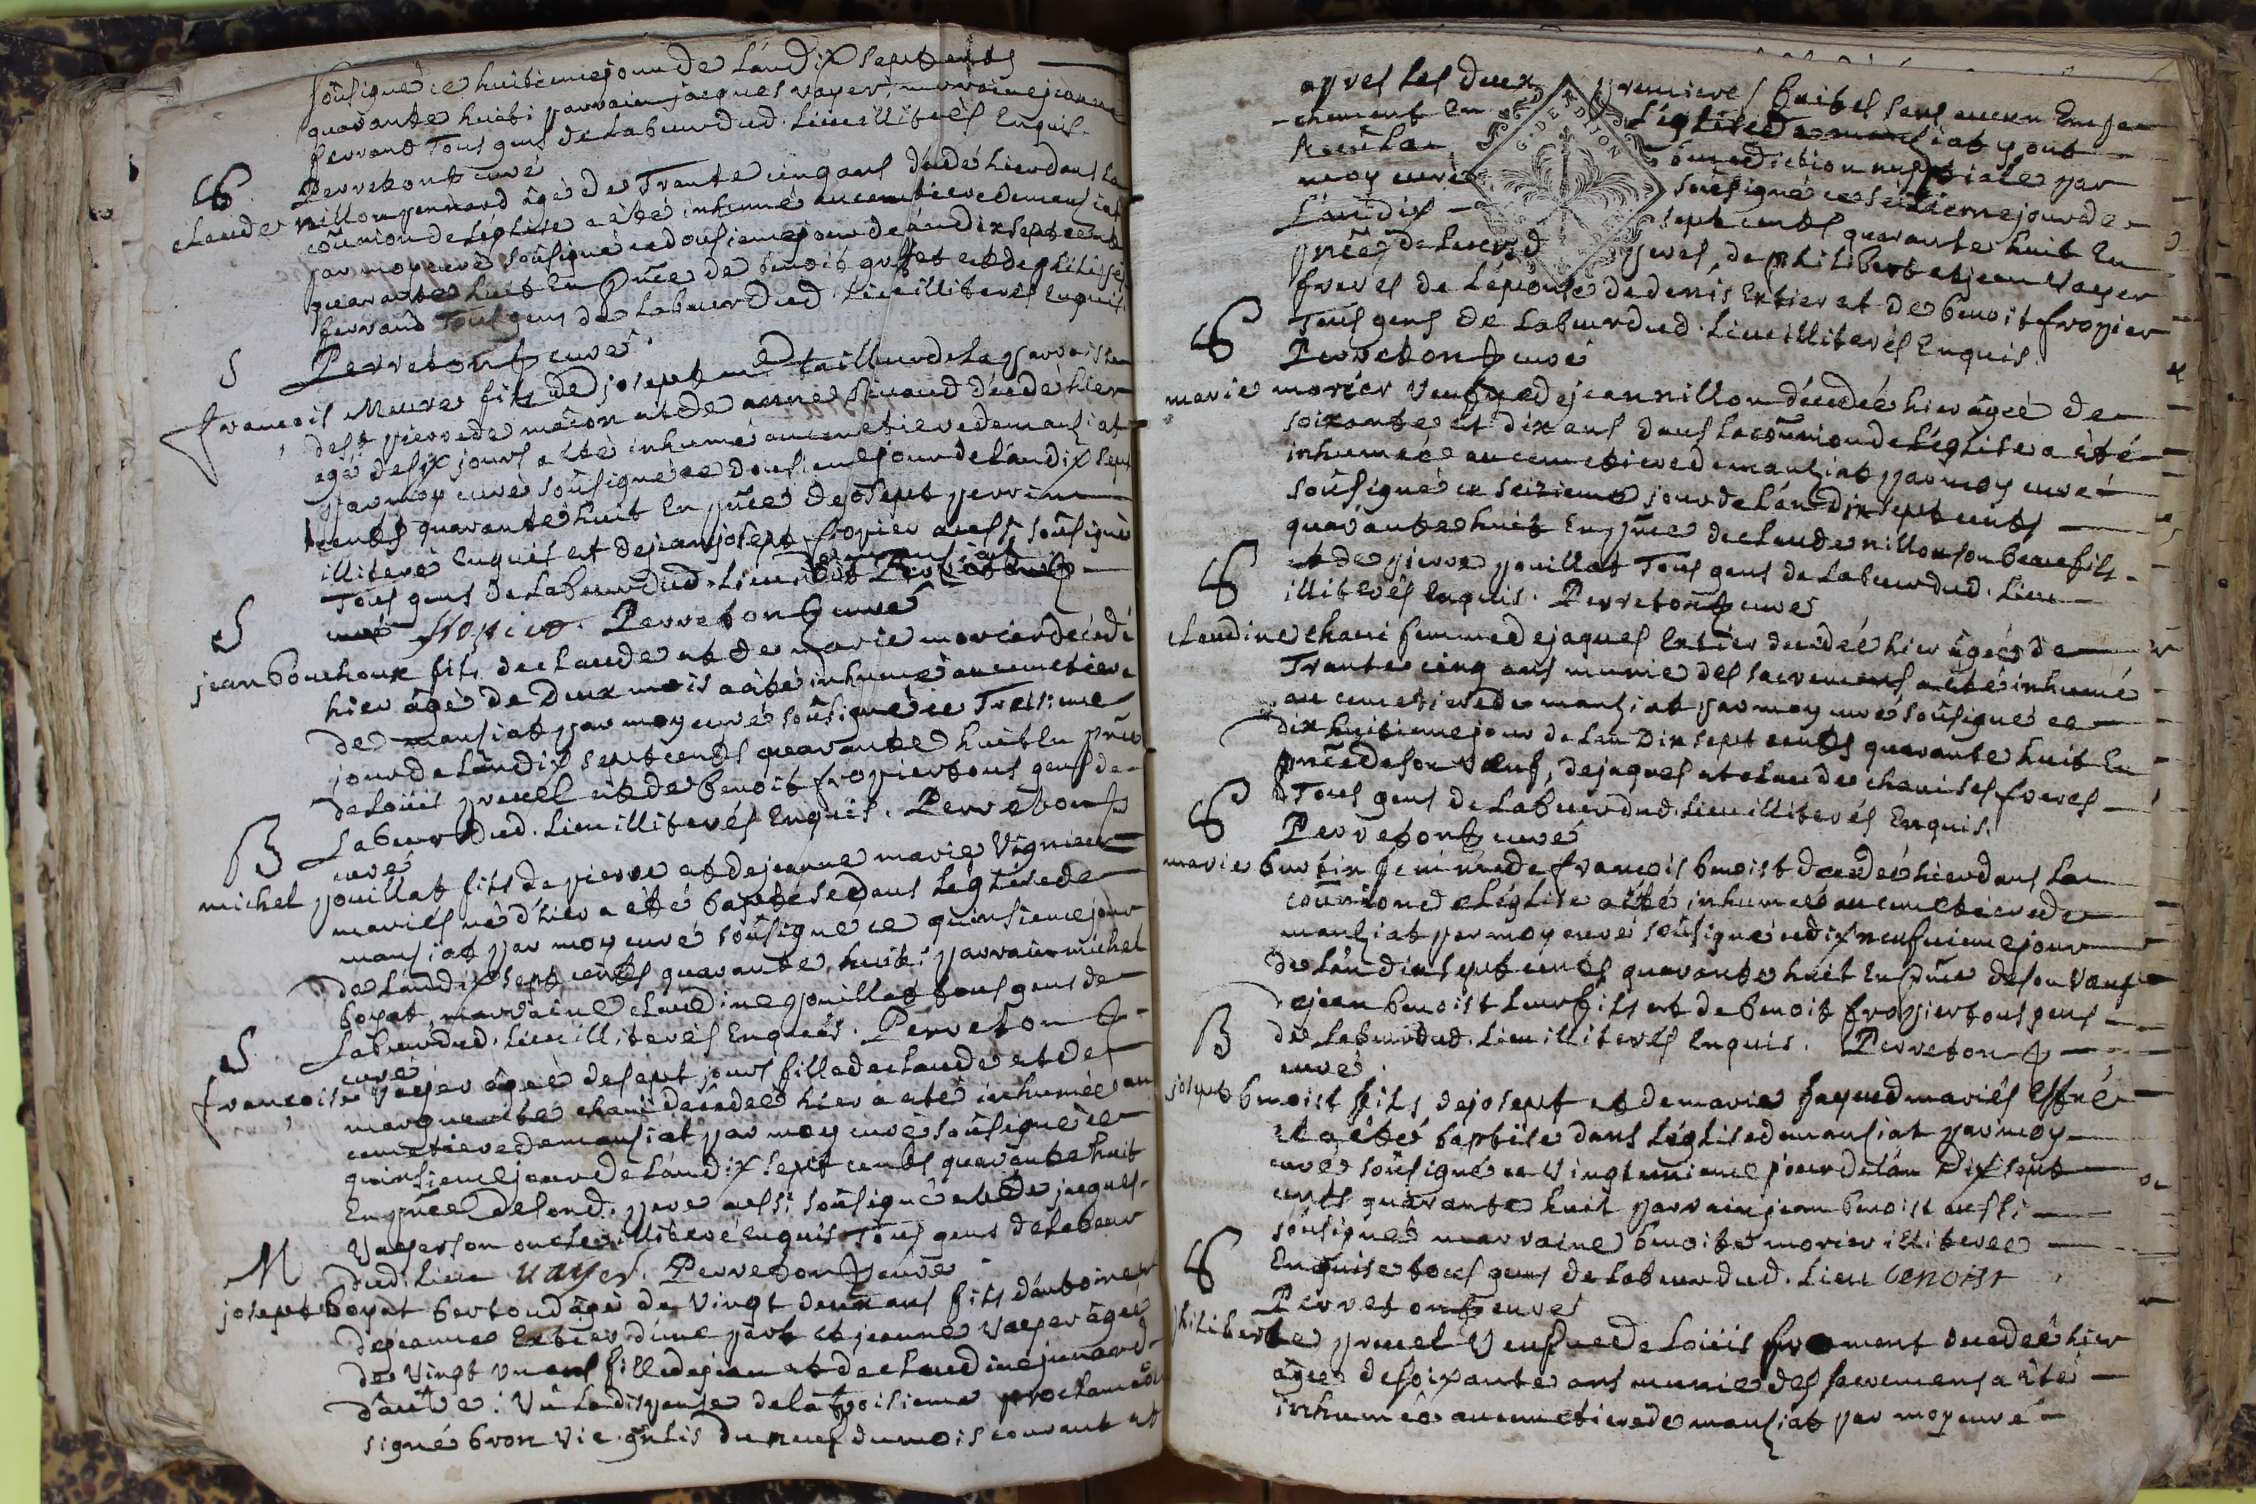 soûsigné ce huitiemejour de Lándix sept cents
quarante huit: parrain jacques vayer, marraine jeanne
ferrand Tous gens de Labeurdud. Lieu illiterés Enquis.
Perreton curé
S
claude nillon pennard âgé de Trante cinq ans décédé hier dans La
coûnion de Léglise a été inhumé aucemetiere de mansiat
par moy curé soûsigné ce dousiemejour de Lándix sept cents
quarante huit En pñce de benoit et de philippe
ferrand Tous gens de Labeurdud. Lieu illiterés Enquis.
Perreton curé.
S
francois Meure fils de joseph md Tailleur de La parroisse
de st pierre de mâcon et de anne décédé hier
agé de six jours a été inhumé aucemetiere demansiat
par moy curé soûsigné ce dousiemejour de Lándix sept
cents quarante huit En pñce de joseph perrin
illiteré Enquis et de jean joseph fropier aussi soûsigné
Tous gens de Labeurdud. Lieu
curé fropier. Perreton curé
S
jean bouchoux fils de claude et de marie morier décédé
hier âgé de Deux mois a été inhumé au cemetiere
de mansiat par moy curé soûsigné ce Treisieme
jour de Lándix sept cents quarante huit En pñce
de Loüis pruel et de benoit fropier tous gens de
Labeurdud. Lieu illiterés Enquis. Perreton
curé
B
michel pouillat fils de pierre et de jeanne marie Vignier
mariés né d'hier a été baptisé dans Léglise de
mansiat par moy curé soûsigné ce quinsiemejour
de Lándix sept cents quarante huit: parrain michel
boyat, marraine claudine pouillat tous gens de
Labeurdud. Lieu illiterés Enquis. Perreton
curé
S
francoise Vayer âgée de sept jours fille de claude et de
marguerite chané décédée hier a été inhumée au
cemetiere demansiat par moy curé soûsigné ce
quinsiemejour de Lándix sept cents quarante huit
En pñce de sond. pere aussi soûsigné et de jacques
Vayer son oncle illiteré Enquis Tous gens de Labeur
dud. Lieu vayer. Perreton curé
M
joseph boyat bertoud âgé de Vingt deux ans fils d'antoine et
de jeanne Extier d'une part et jeanne Vayer âgée
de Vingt un ans fille de jean et de claudine
d'autre: Vû La dispense de la troisieme proclamaõn
signé bron Vic. gñl is du neuf du mois courant et
apres Les deux premieres faites sans aucun Empe-
-chement En Léglise de mansiat y ont
Receu La benediction nuptiale par
moy curé soûsigné ce seisiemejour de
L'an dix sept cents quarante huit En
pñce de Leursd peres, de philibert et jean Vayer
freres de Lépouse de denis Extier et de benoit fropier
Tous gens de Labeurdud. Lieu illiterés Enquis.
Perreton curé
S
marie morier Veufve de jean nillon décédée hier âgée de
soixante et dix ans dans La coûnion de Léglise a été
inhumée au cemetiere de mansiat par moy curé
soûsigné ce seizieme jour de Lándix sept cents
quarante huit En pñce de claude nillon son beaufils
et de pierre pouillat Tous gens de Labeurdud. Lieu
illiterés Enquis. Perreton curé
S
claudine chané femme de jaques Extier décédée hier âgée de
Trante cinq ans munie des sacremens a été inhumé
au cemetiere de mansiat par moy curé soûsigné ce
dixhuitieme jour de Lan Dix sept cents quarante huit En
pñce de son Veuf, de jaques et claude chané ses freres
Tous gens de Labeurdud. Lieu illiterés Enquis.
Perreton curé
S
marie burtin femme de francois benoist décédée hier dans La
coûnion de Léglise a été inhumée au cemetiere de
mansiat par moy curé soûsigné ce dix neufviemejour
de Lándix sept cents quarante huit En pñce de son Veuf
de jean benoist Leurfils et de benoit fropier tous gens
de Labeurdud. Lieu illiterés Enquis. Perreton
curé.
B
joseph benoist fils de joseph et de marie mariés Est né
et a été baptisé dans Léglise de mansiat par moy
curé soûsigné ce Vingt unieme jour de Lán Dix sept
cents quarante huit parrain jean benoist aussi
soûsigné marraine benoite morier illiteree
Enquise tous gens de Labeurdud. Lieu benoist
Perreton curé
S
philiberte pruel Veufve de Loüis froment décédée hier
âgée de soixante ans munie des sacremens a été
inhumée au cemetiere de mansiat par moy curé
DE DIJON